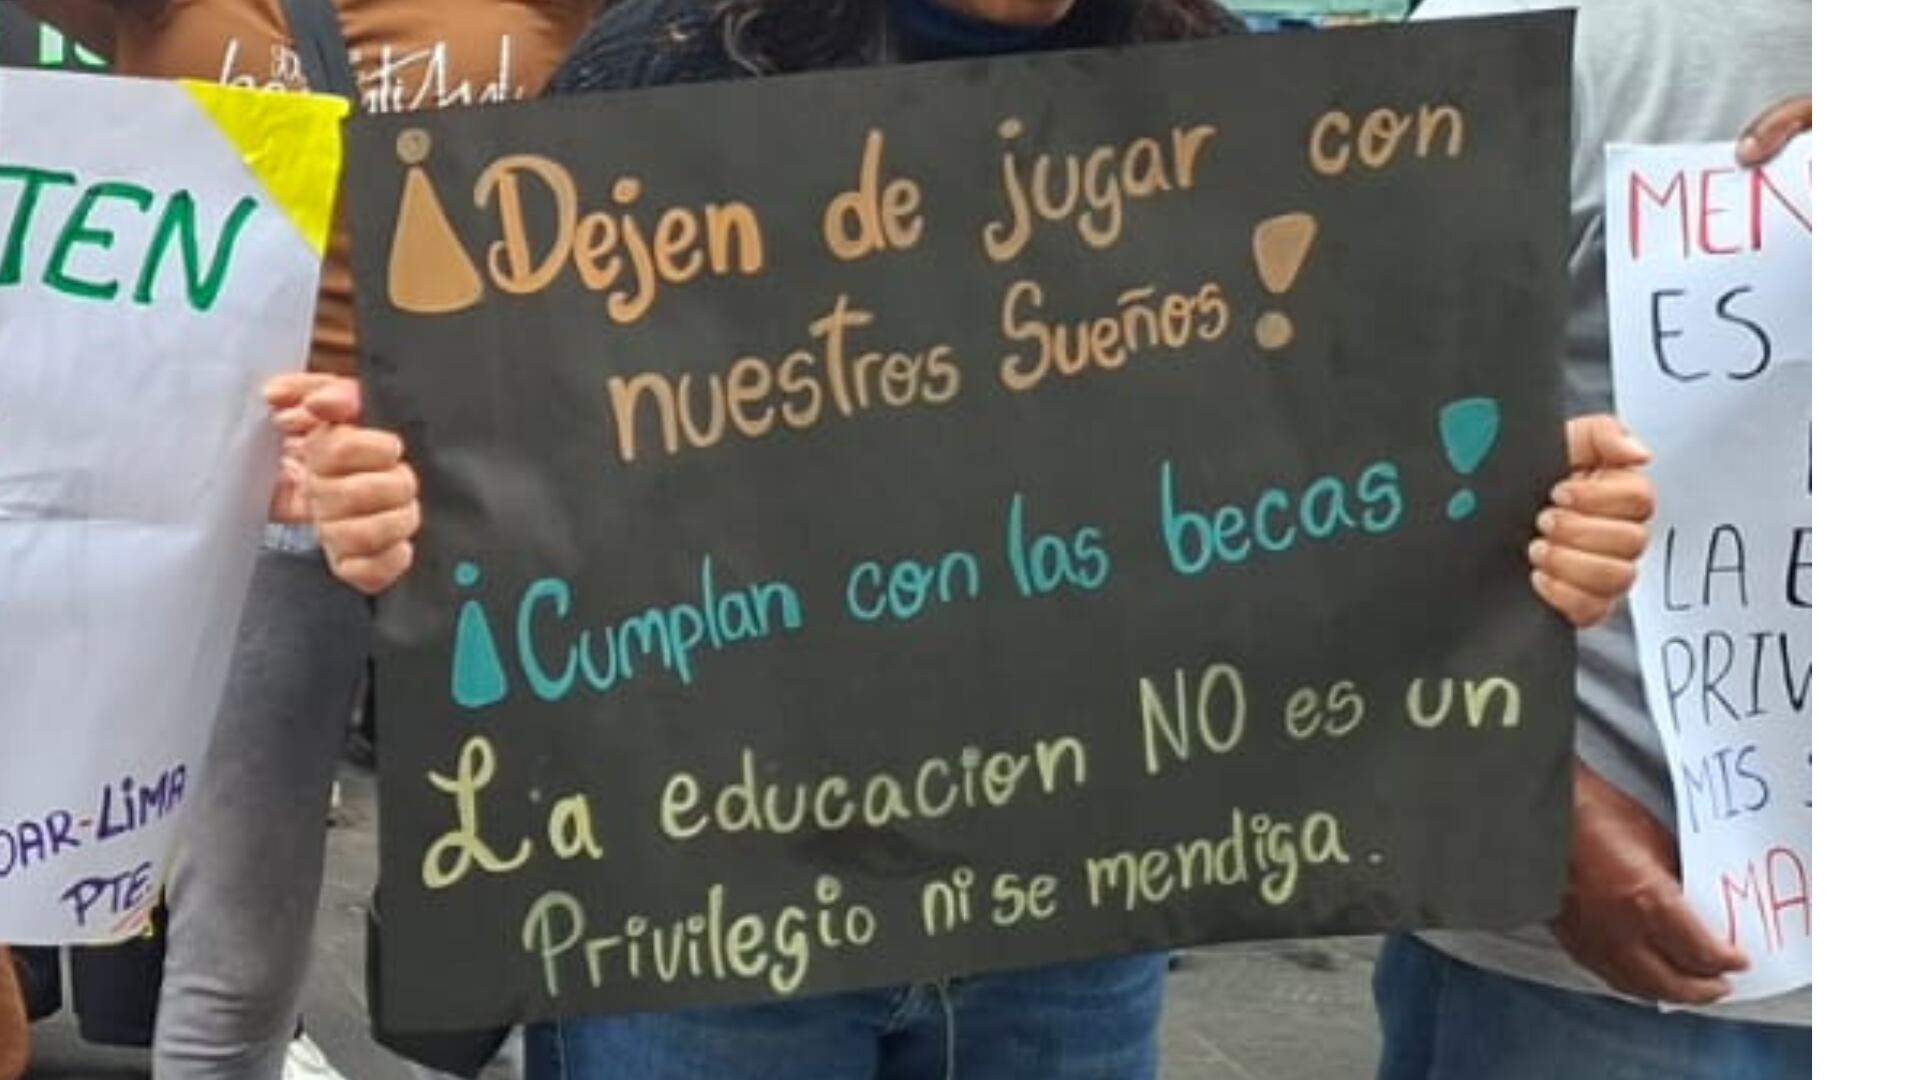 TEN
OAR-LiMA
PTE
¡Dejen de jugar con
nuestros Sueños!
¡Cumplan con las becas!
La educacion NO es un
Privilegio ni se mendiga.
MEN
ES
LA E
PRIV
MIS
MA